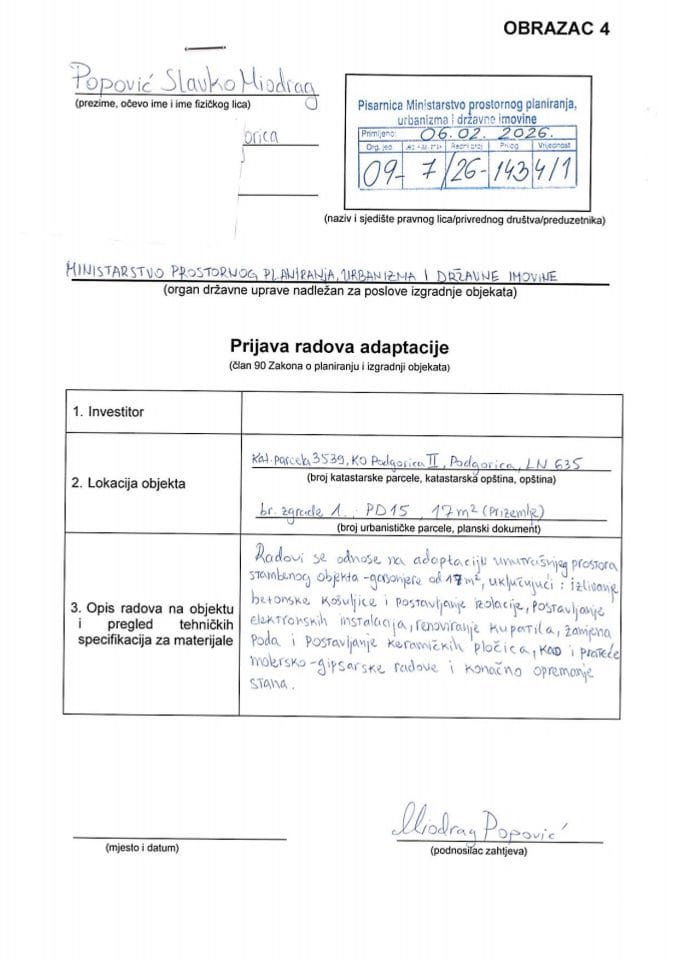 OBRAZAC 4
Popović Slavko Miodrag
(prezime, očevo ime i ime fizičkog lica)
orica
Pisarnica Ministarstvo prostornog planiranja,
urbanizma i državne imovine
Primljeno: 06. 02. 2026.
Org. jed. Prilog Vrijednost
09- 7/26-1434/1
(naziv i sjedište pravnog lica/privrednog društva/preduzetnika)
MINISTARSTVO PROSTORNOG PLANIRANJA, URBANIZMA I DRŽAVNE IMOVINE
(organ državne uprave nadležan za poslove izgradnje objekata)
Prijava radova adaptacije
(član 90 Zakona o planiranju i izgradnji objekata)
1. Investitor
2. Lokacija objekta
Kat. parcela 3539, KO Podgorica II, Podgorica, LN 635
(broj katastarske parcele, katastarska opština, opština)
br. zgrade 1. PD15, 17m² (Prizemlje)
(broj urbanističke parcele, planski dokument)
3. Opis radova na objektu
i pregled tehničkih
specifikacija za materijale
Radovi se odnose na adaptaciju unutrašnjeg prostora
stambenog objekta-garsonjere od 17m², uključujući: izlivanje
betonske košuljice i postavljanje izolacije, postavljanje
elektronskih instalacija, renoviranje kupatila, zamjena
poda i postavljanje keramičkih pločica, kao i prateće
molersko-gipsarske radove i konačno opremanje
stana.
(mjesto i datum)
Miodrag Popović
(podnosilac zahtjeva)